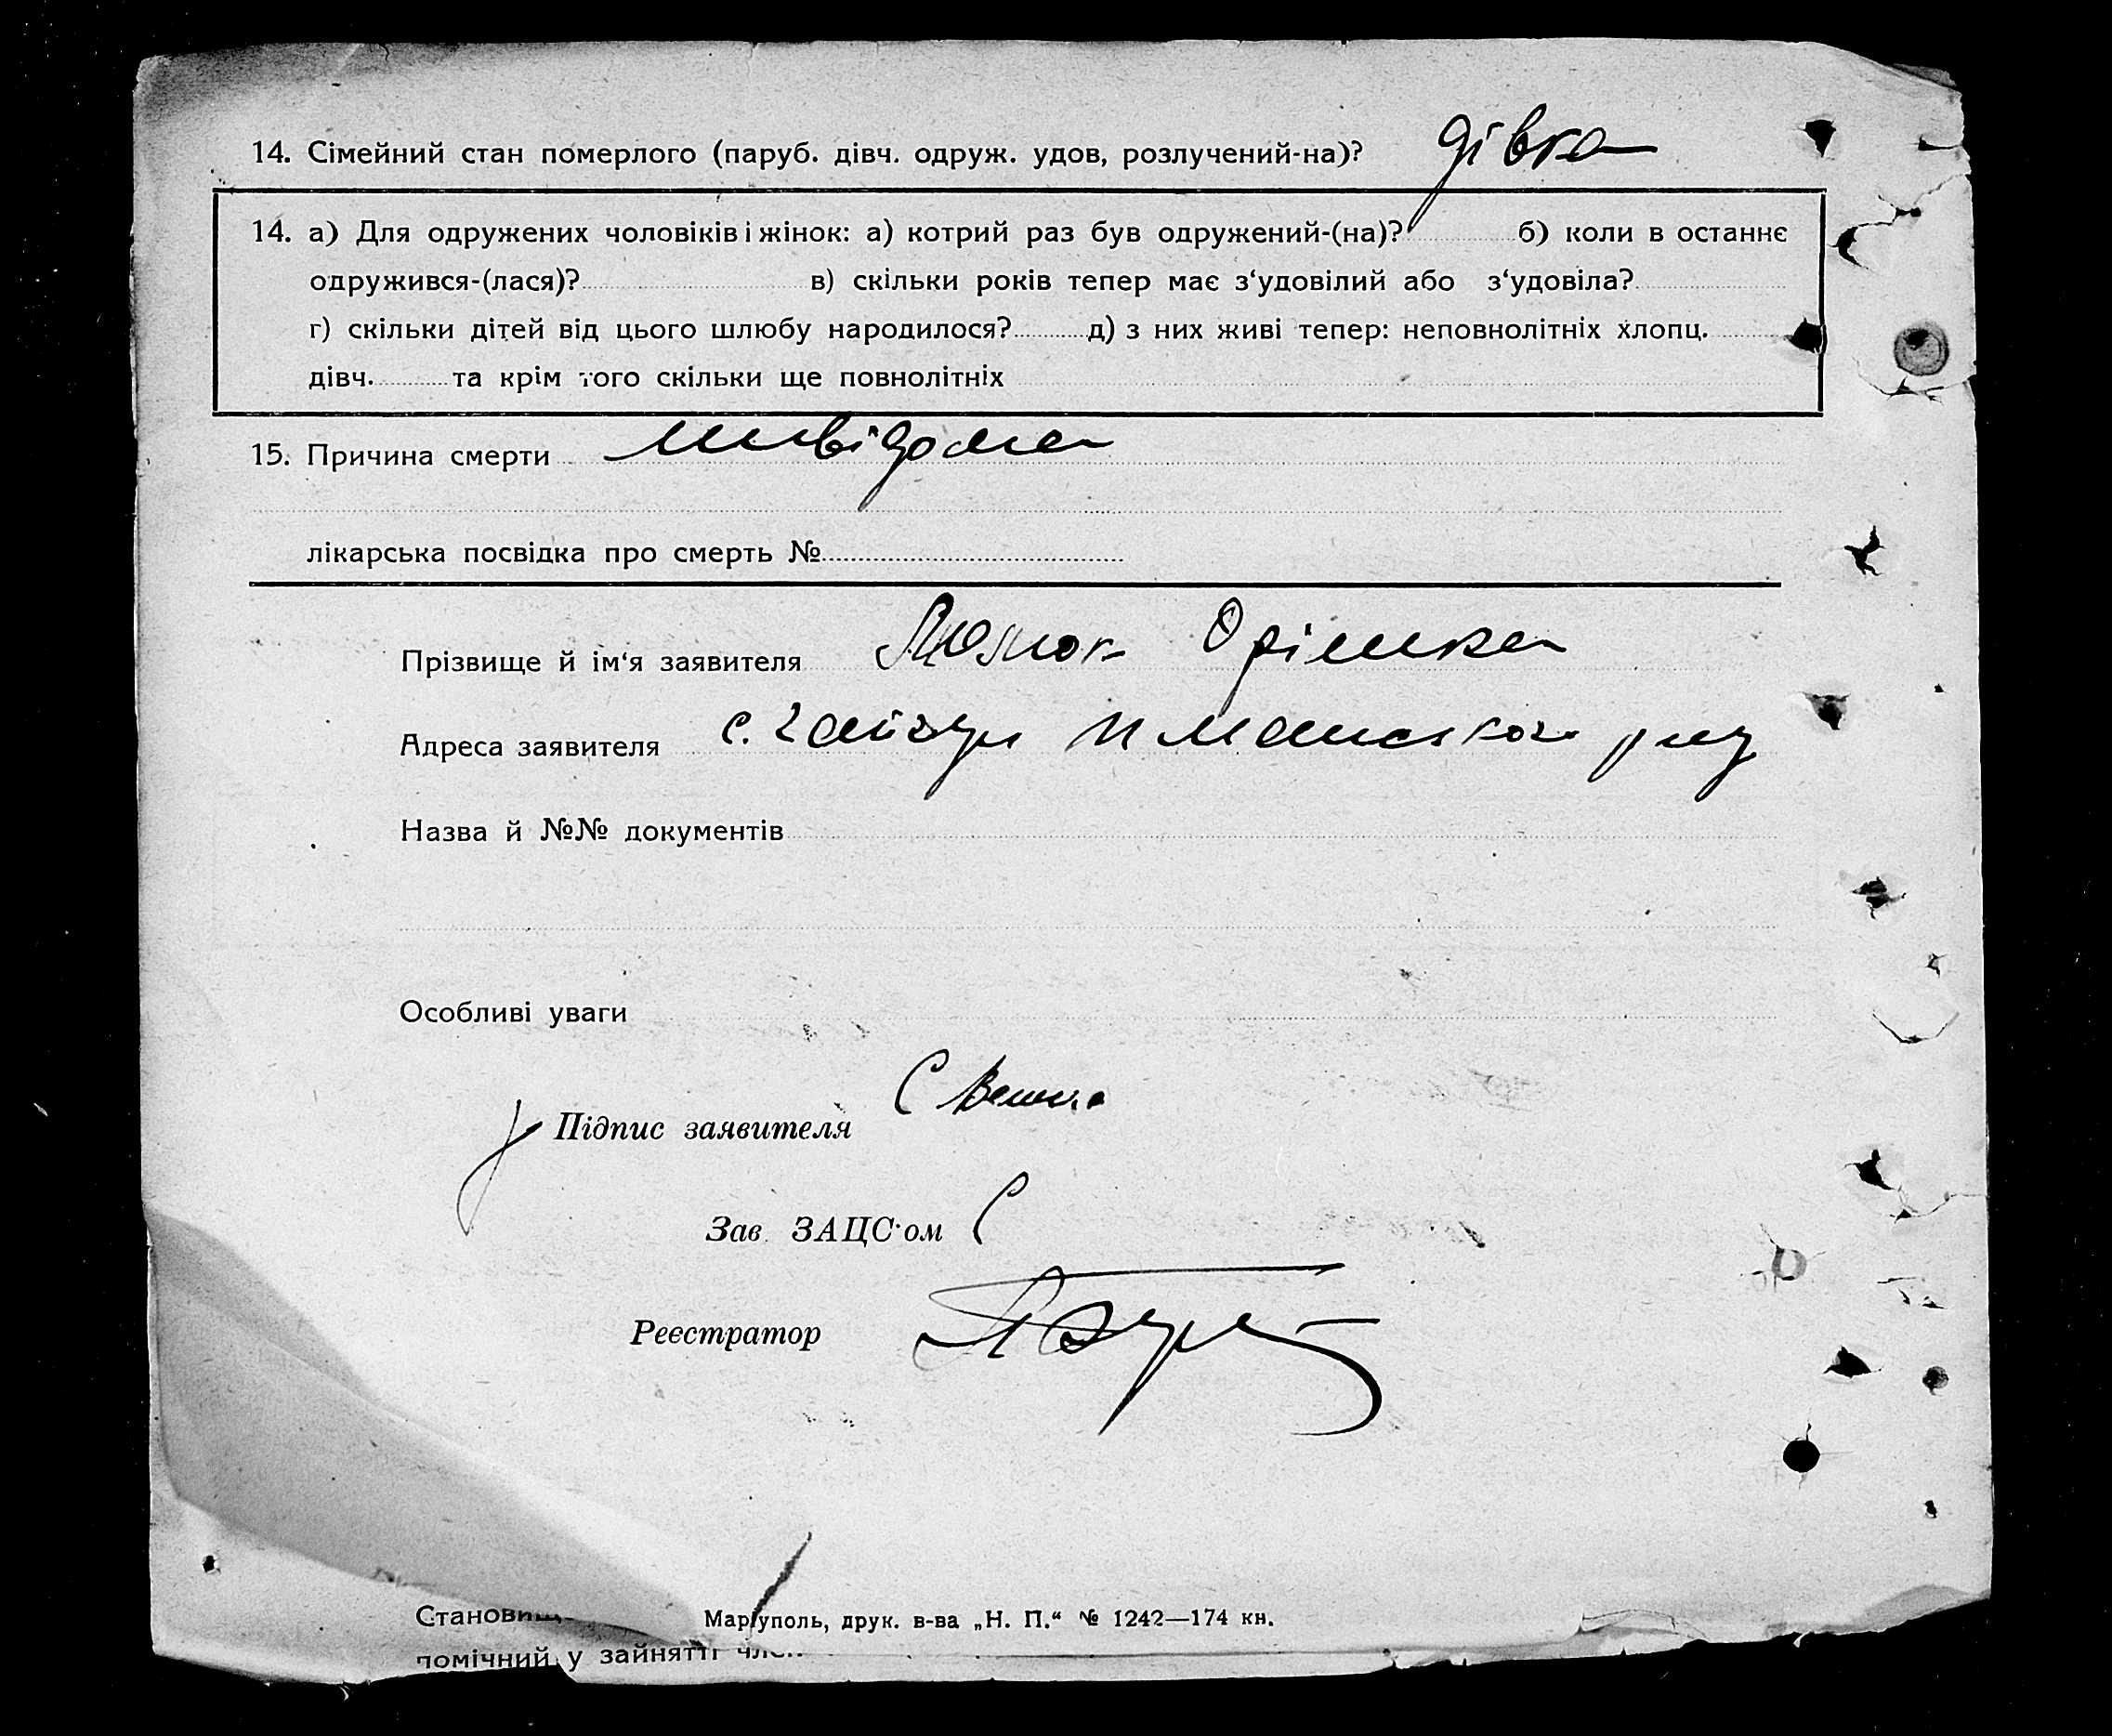 14. Сімейний стан померлого (паруб. дівч. одруж. удов, розлучений-на)? дівка
14. а) Для одружених чоловіків і жінок: а) котрий раз був одружений-(на)? б) коли в останнє
одружився-(лася)? в) скільки років тепер має з‘удовілий або з‘удовіла?
г) скільки дітей від цього шлюбу народилося? д) з них живі тепер: неповнолітніх хлопц.
дівч. та крім того скільки ще повнолітніх
15. Причина смерти невідома
лікарська посвідка про смерть №
Прізвище й ім‘я заявителя Орішка
Адреса заявителя с. Гайзул
Назва й №№ документів
Особливі уваги
Підпис заявителя
Зав. ЗАЦС‘ом
Реєстратор
Маріуполь, друк. в-ва „Н. П.“ № 1242—174 кн.
помічний у зайнятті